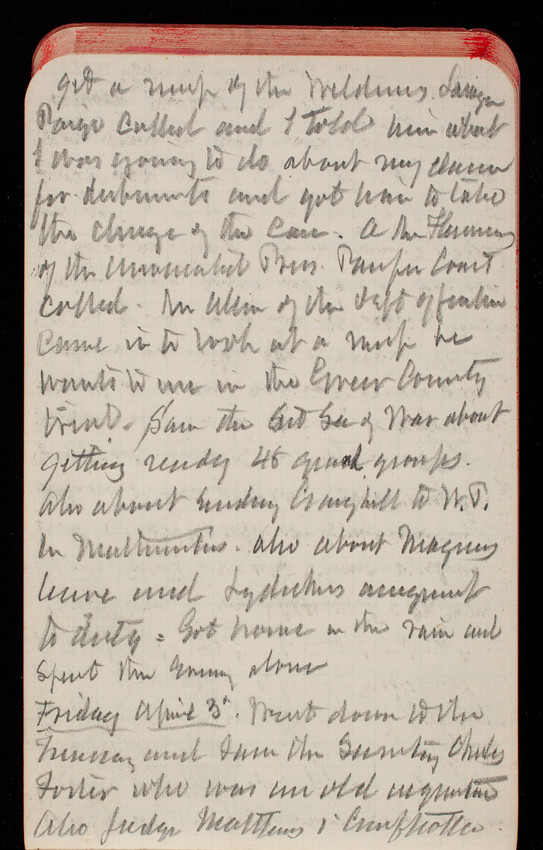 get a map of the Wilderness. Lawyer
Paige called and I told him what
I was going to do about my claim
for disbursements and got him to take
the charge of the Case. A Mr Fleming
of the Associated Press
called. Mr Allen of the Dept of Justice
Came in to look at a map he
wants to use in the Greer County
trial. Saw the Sec of War about
getting ready 48 groups.
Also about sending Craighill to W.P.
in Mathematics. Also about Maguires
leave and Lydeckers assignment
to duty = Got home in the rain and
spent the evening alone
Friday April 3d. Went down to the
Treasury and saw the Secretary Charles
Foster who was an old acquaintance
Also Judge Matthews &